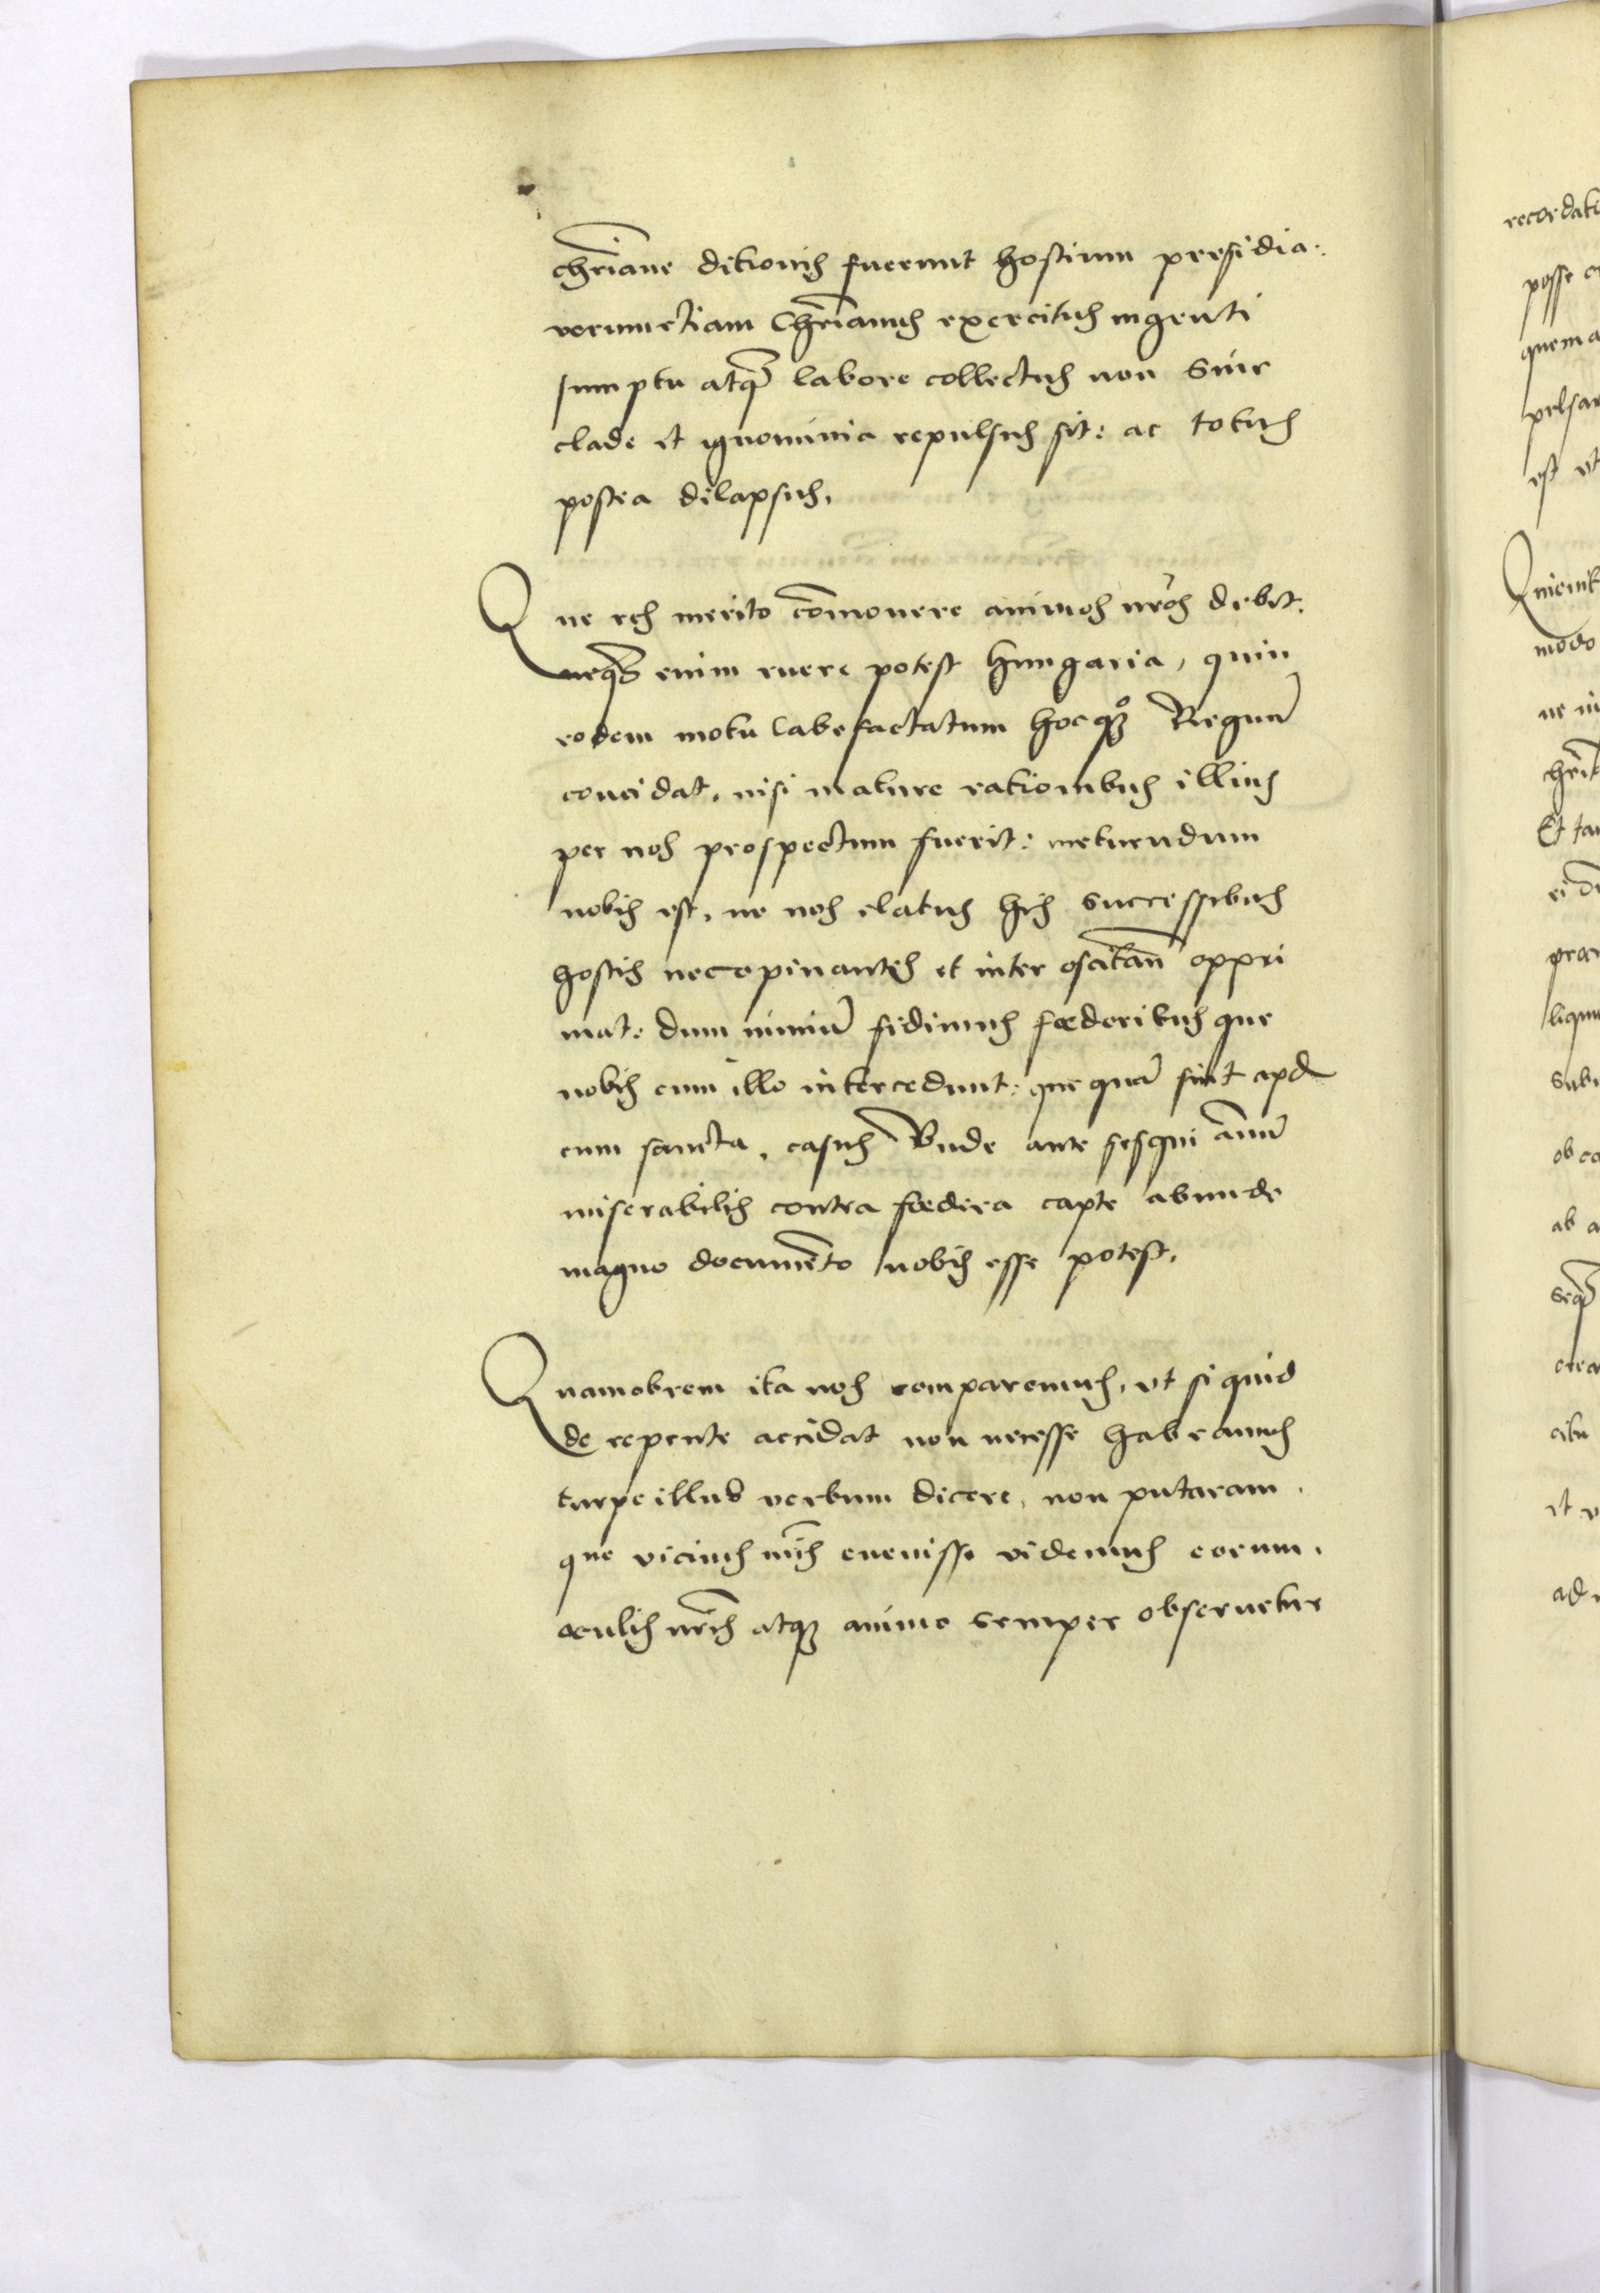 chr̃iane ditionis fuerunt hostium presidia:
verumetiam Chr̃ianus exercitus ingenti
sumptu atq̃ labore collectus non sine
clade et ignominia repulsus sit: ac totus
postea dilapsus.
Que res merito com̃ouere animos nr̃os debet:
neq̃ enim ruere potest Hungaria, quin
eodem motu labefactatum hoc qq̊ Regnũ
concidat, nisi mature rationibus illius
per nos prospectum fuerit: metuendum
nobis est, ne nos elatus his successibus
hostis necopinantes et inter oscitan̄ oppri
mat: dum nimiũ fidimus fœderibus que
nobis cum illo intercedunt: que quã sint apd
eum sancta, casus Bude ante sesqui annũ
miserabilis contra fœdera capte abunde
magno documẽto nobis esse potest.
Quamobrem ita nos comparemus, vt si quid
de repente accidat non necesse habeamus
turpe illud verbum dicere, non putaram.
que vicinis nr̃is euenisse videmus eorum.
oculis nr̃is atq; animo semper obseruetur
recordati
posse
quem a
pelsar
est vt
modo
ne in
Et tam
ab a
et v